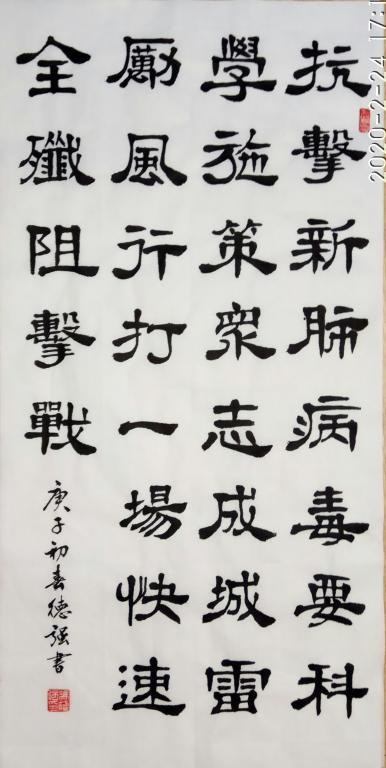 抗擊新肺病毒要科
學施策衆志成城雷
厲風行打一場快速
全殲阻擊戰
庚子初春德強書
2020-2-24 17:1